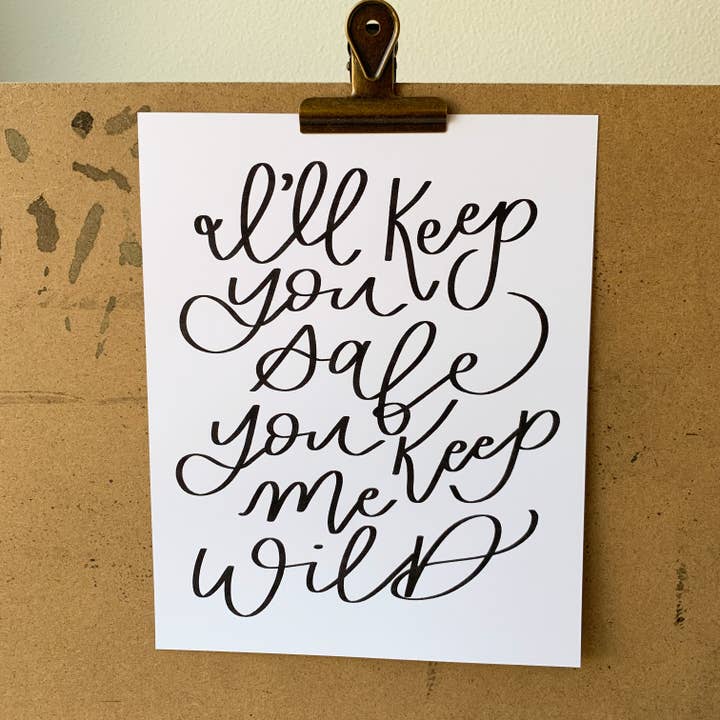 I'll Keep
you
safe
you Keep
me
WilD